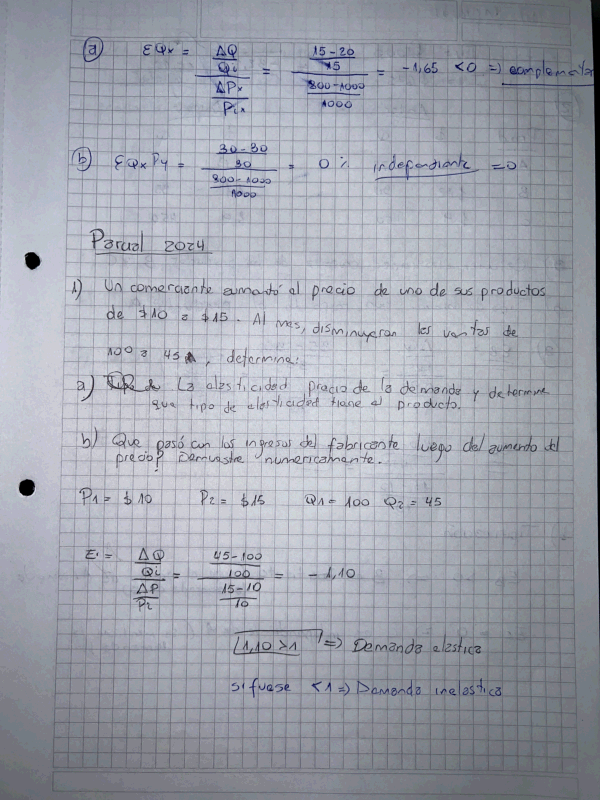 a) εQx = ΔQ/Qi / ΔPx/Pix = 15-20/15 / 800-1000/1000 = -1,65 <0 => complementar
b) εQxPy = 30-30/30 / 800-1000/1000 = 0% independiente =0
Parcial 2024
1) Un comerciante aumentó el precio de uno de sus productos
de $10 a $15. Al mes, disminuyeron las ventas de
100 a 45, determine:
a) La elasticidad precio de la demanda y determine
que tipo de elasticidad tiene el producto.
b) Que pasó con los ingresos del fabricante luego del aumento del
precio? Demuestre numericamente.
P1 = $10 P2 = $15 Q1 = 100 Q2 = 45
E. = ΔQ/Qi / ΔP/Pi = 45-100/100 / 15-10/10 = -1,10
1,10 >1 => Demanda elastica
si fuese <1 => Demanda inelastica